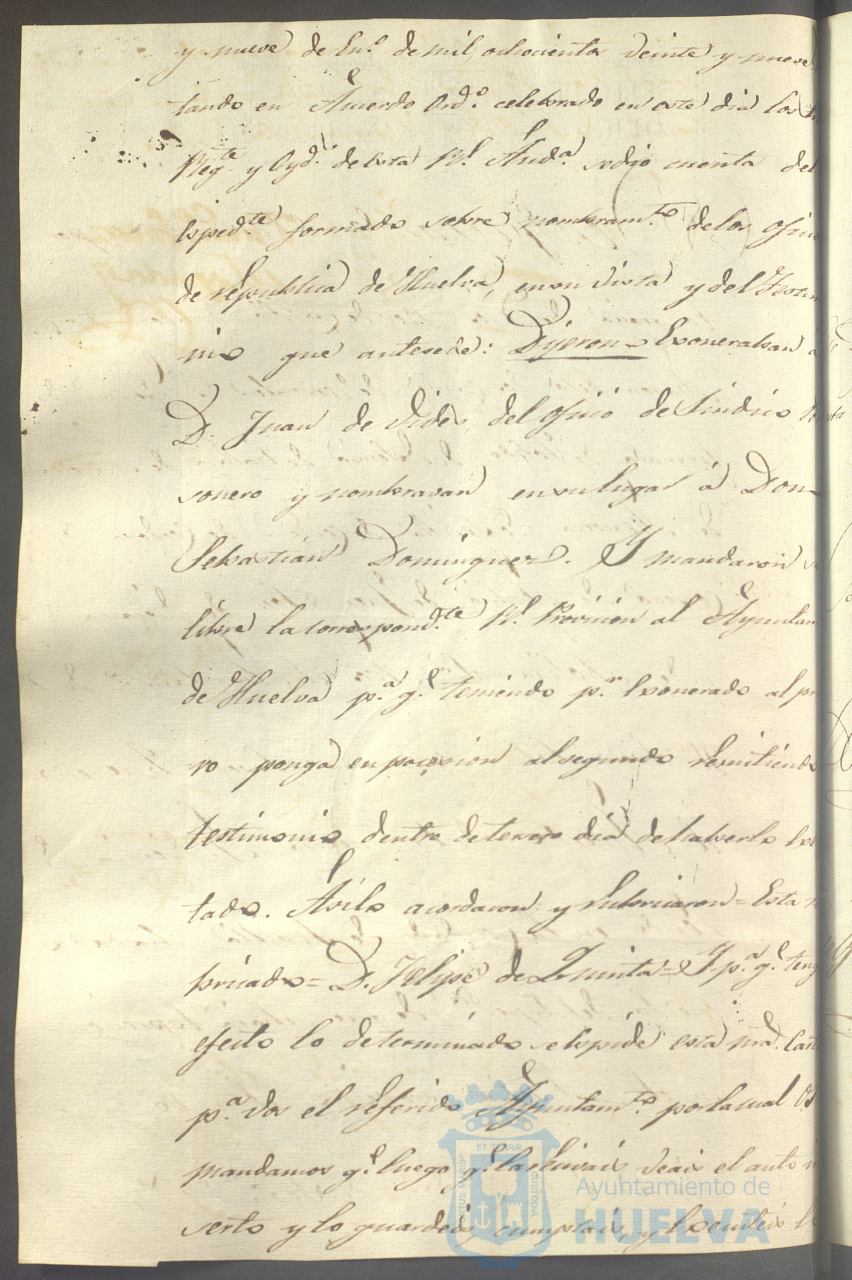 y nueve de En.º de mil ochocientos veinte y nueve
tando en Acuerdo Ord.º celebrado en este dia los
Reg.te y Oyd.s de esta R.l Aud.a se dio cuenta del
Esped.te formado sobre nombram.to de los ofici
de republica de Huelva, en su vista y del Testim
nio que antesede: Dijeron= Exoneraban a
D. Juan de Vides, del oficio de Sindico
sonero y nombravan en su lugar á Don
Sebastian Dominguez. Y mandaron
libre la correspond.te R.l Provision al Ayuntam
de Huelva p.a q.e teniendo p.r Exonerado al pri
ro ponga en posesion al segundo remitiendo
testimonio dentro de tercero dia de haberlo
tado. Asi lo acordaron y rubricaron= Esta
bricado= D. Felipe de Quinta= Y p.a q.e teng
efecto lo determinado se espide esta nra. Carta
p.a vos el referido Ayuntam.to por la cual Os
mandamos q.e luego q.e la recivais veais el auto in
serto y lo guardeis, cumplais, y Executeis
ET TERRÆ
CUSTODIA
Ayuntamiento de
HUELVA